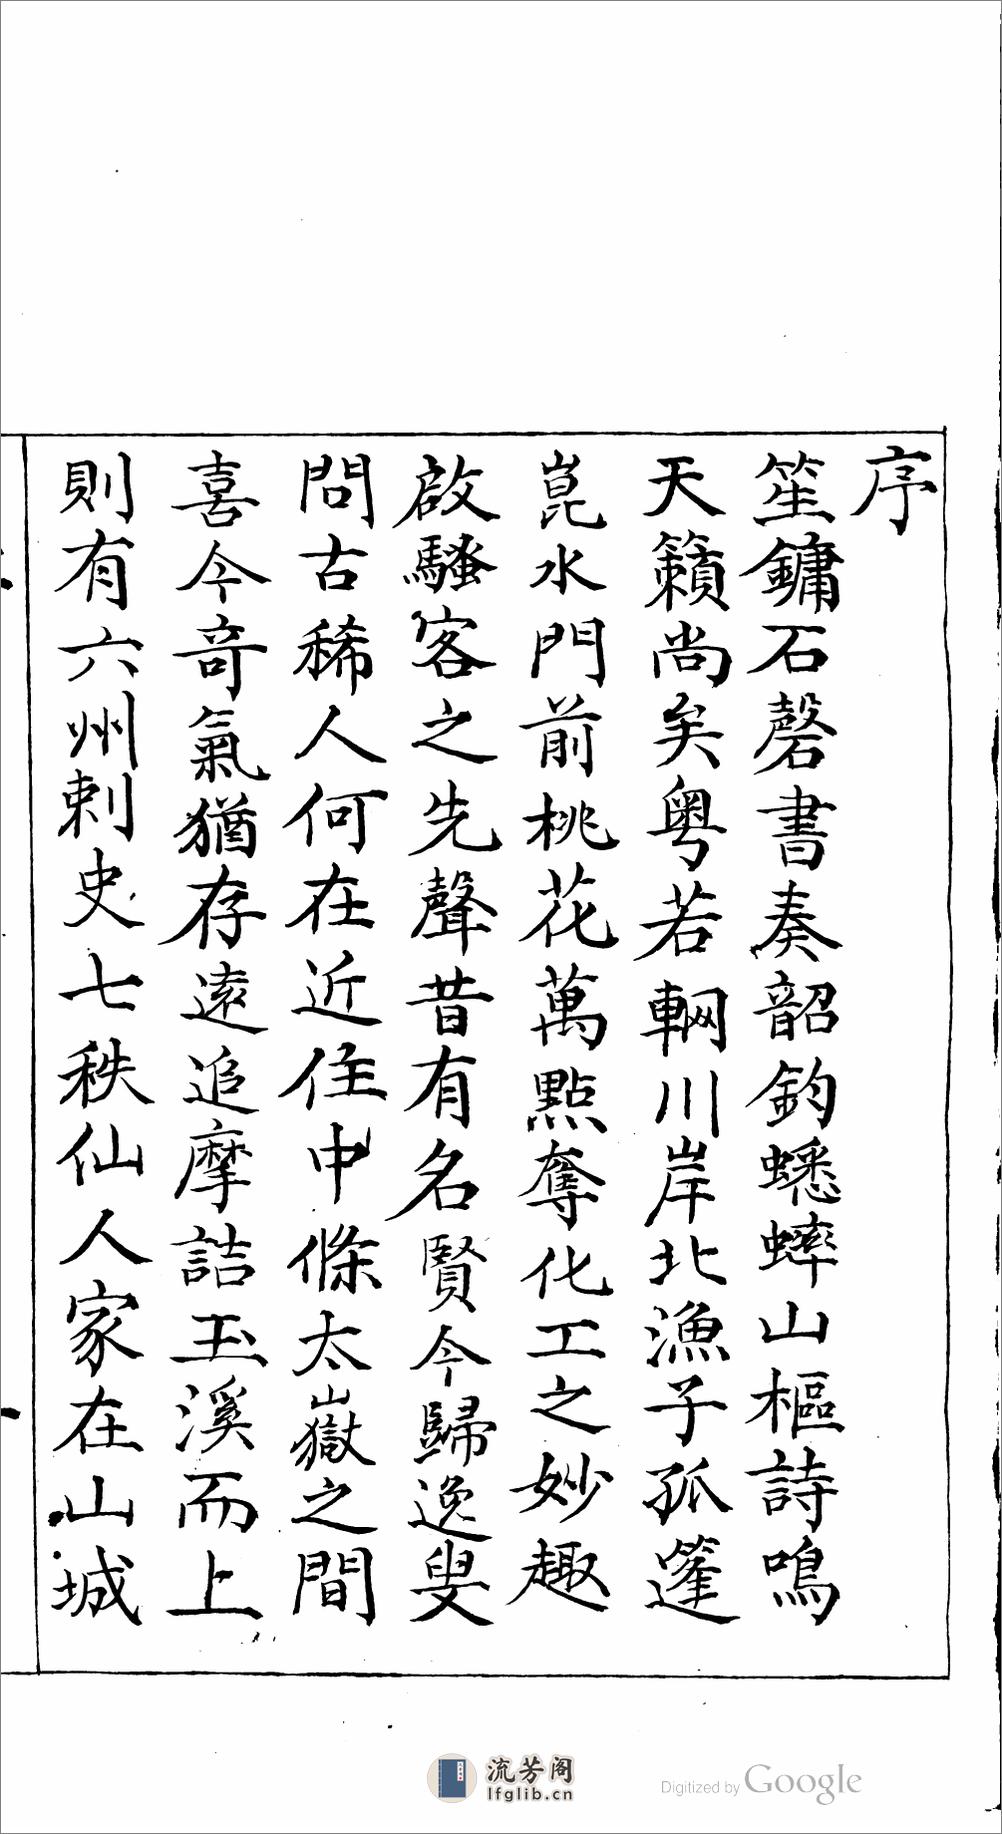 序
笙鏞石磬書奏韶鈞蟋蟀山樞詩鳴
天籟尚矣粤若輞川岸北漁子孤篷
崑水門前桃花萬點奪化工之妙趣
啟騷客之先聲昔有名賢今歸逸叟
問古稀人何在近住中條太嶽之間
喜今奇氣猶存遠追摩詰玉溪而上
則有六州刺史七秩仙人家在山城
流芳阁
lfglib.cn
Digitized by Google